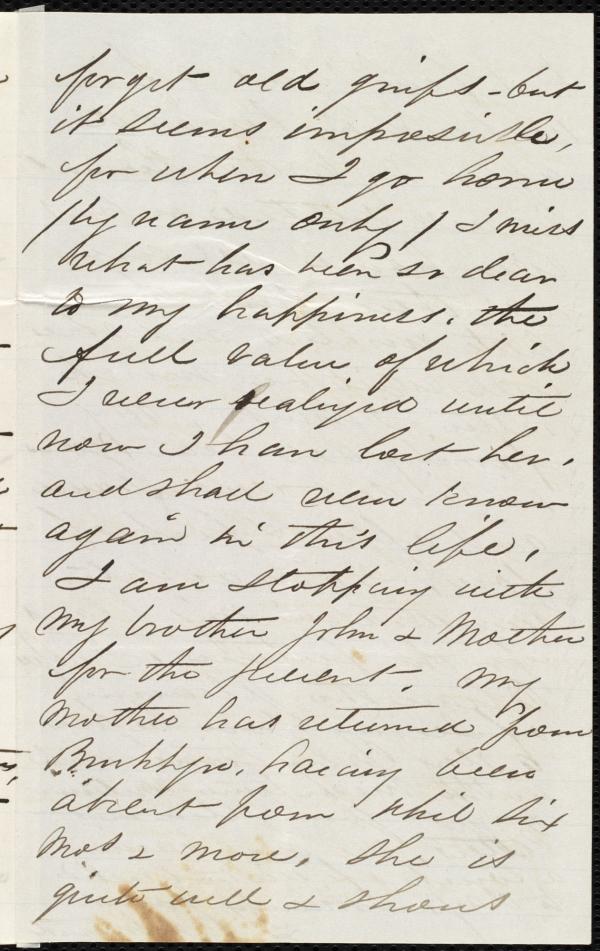 forget old griefs - but
it seems impossible,
for when I go home
(by name only) I miss
what has been so dear
to my happiness. the
full value of which
I never realized until
now I have lost her.
and shall never know
again in this life,
I am stopping with
my brother John & Mother
for the present. My
Mother has returned from
Brooklyn, having been
absent from Phil six
mos & more. She is
quite well & shows